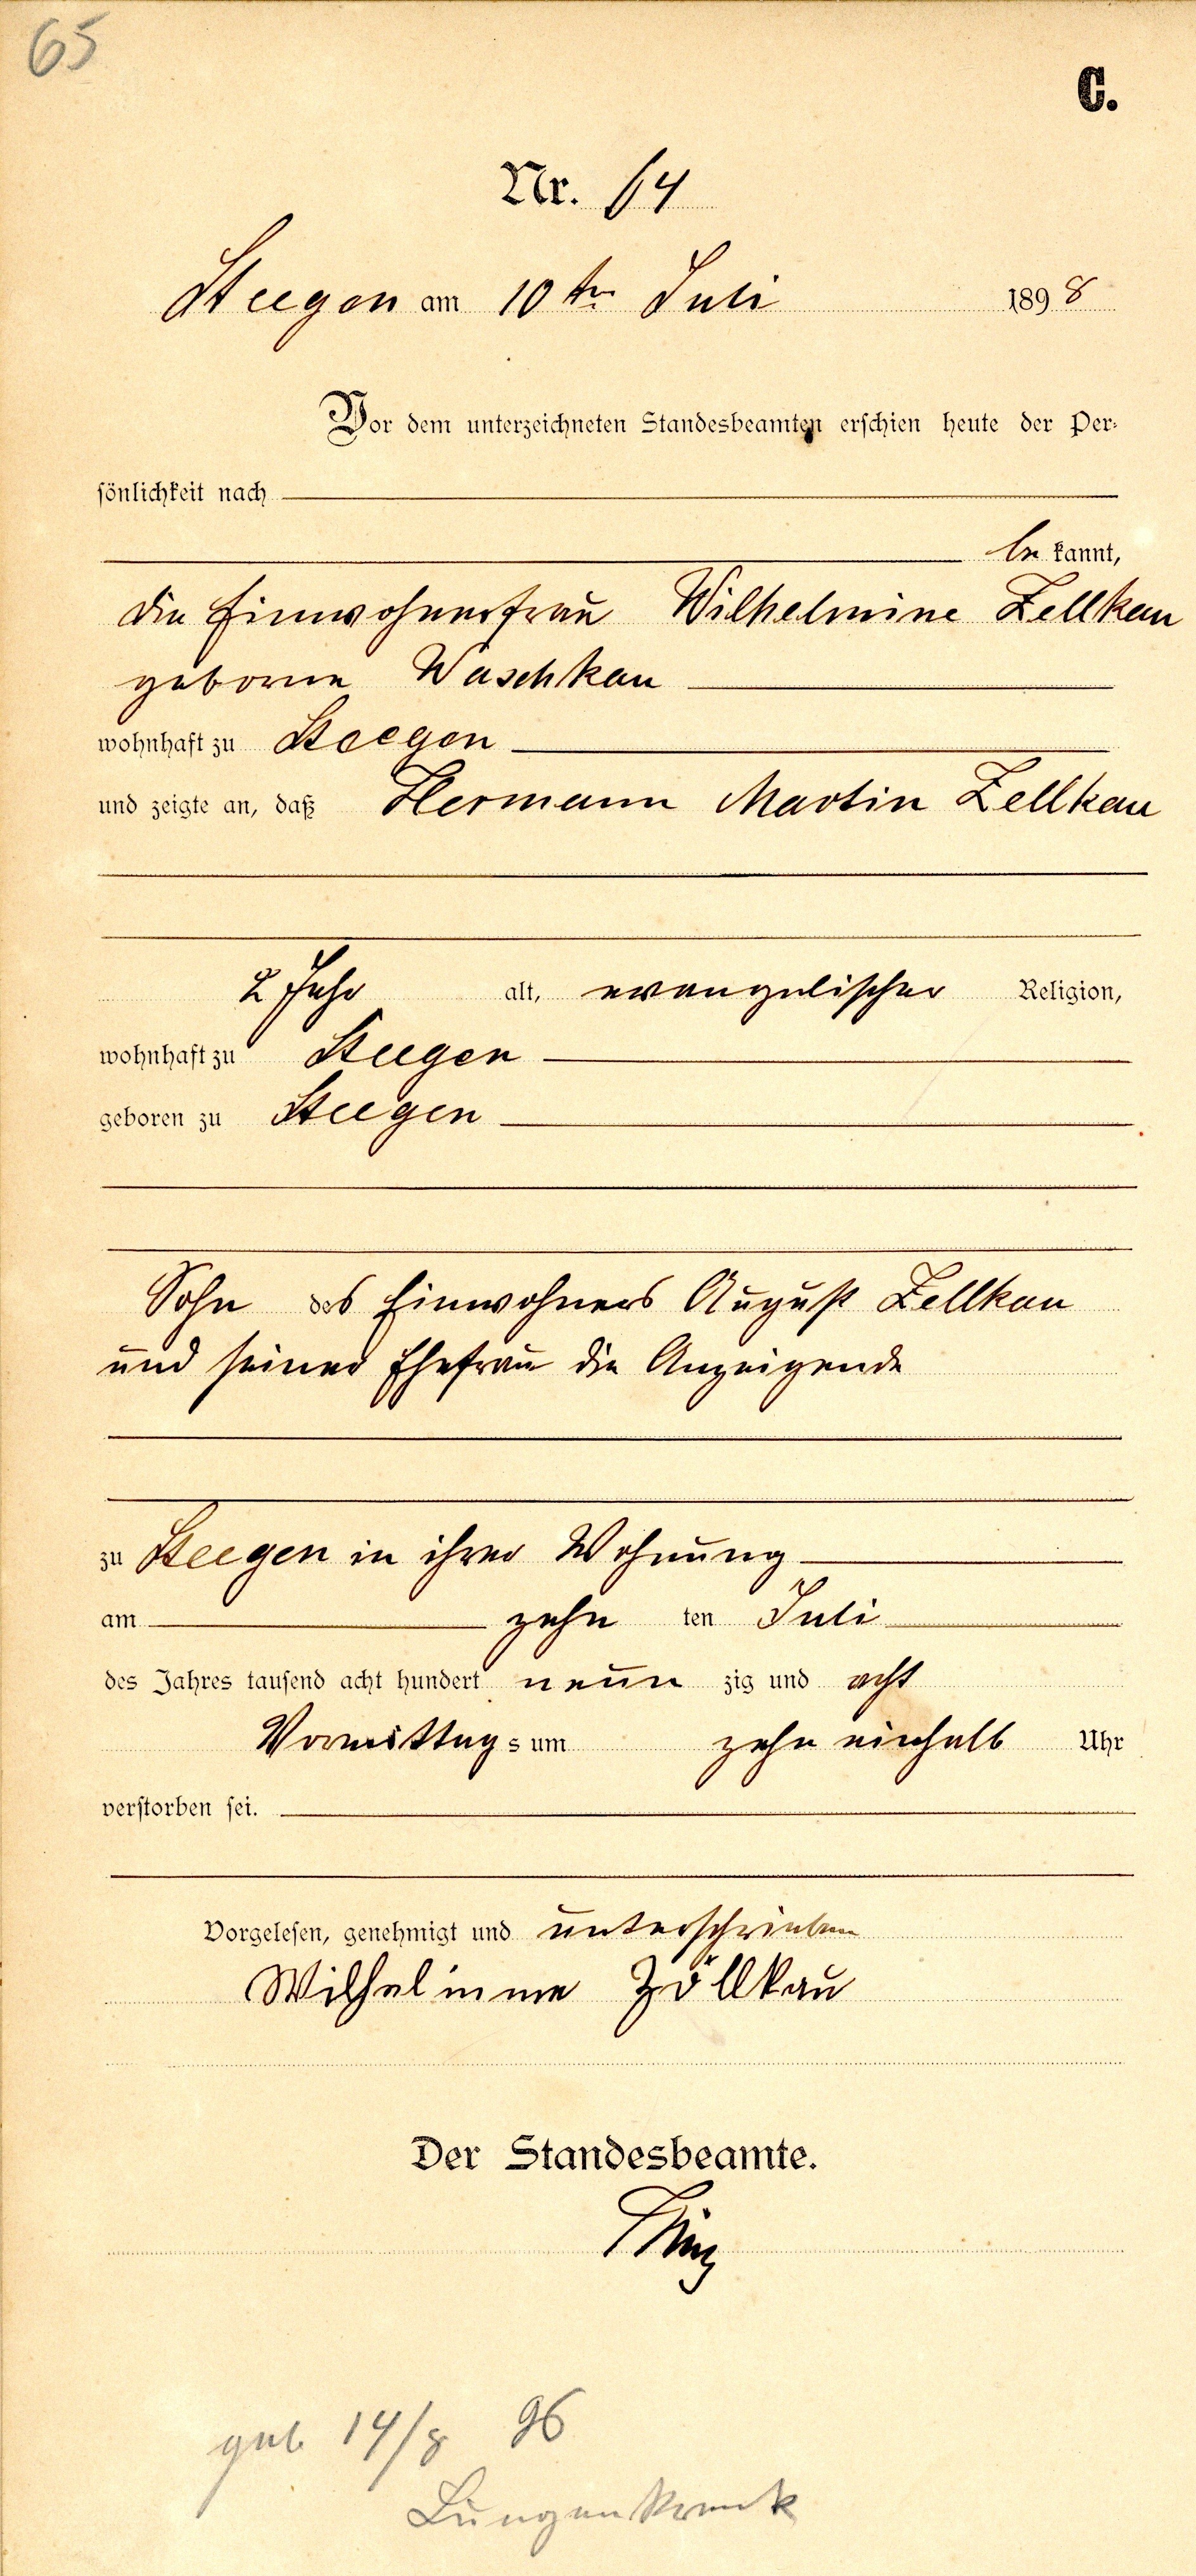 65
C.
Nr. 64
Steegen am 10ten Juli 1898
Vor dem unterzeichneten Standesbeamten erschien heute der Per-
sönlichkeit nach
be kannt,
die Einwohnerfrau Wilhelmine Zellkau
geborne Waschkau
wohnhaft zu Steegen
und zeigte an, daß Hermann Martin Zellkau
2 Jahr alt, evangelischer Religion,
wohnhaft zu Steegen
geboren zu Steegen
Sohn des Einwohners August Zellkau
und seiner Ehefrau die Anzeigende
zu Steegen in ihrer Wohnung
am zehn ten Juli
des Jahres tausend acht hundert neun zig und acht
Vormittags um zehn einhalb Uhr
verstorben sei.
Vorgelesen, genehmigt und unterschrieben
Wilhelmine Zöllkau
Der Standesbeamte.
geb 14/8 96
Lungenkrank